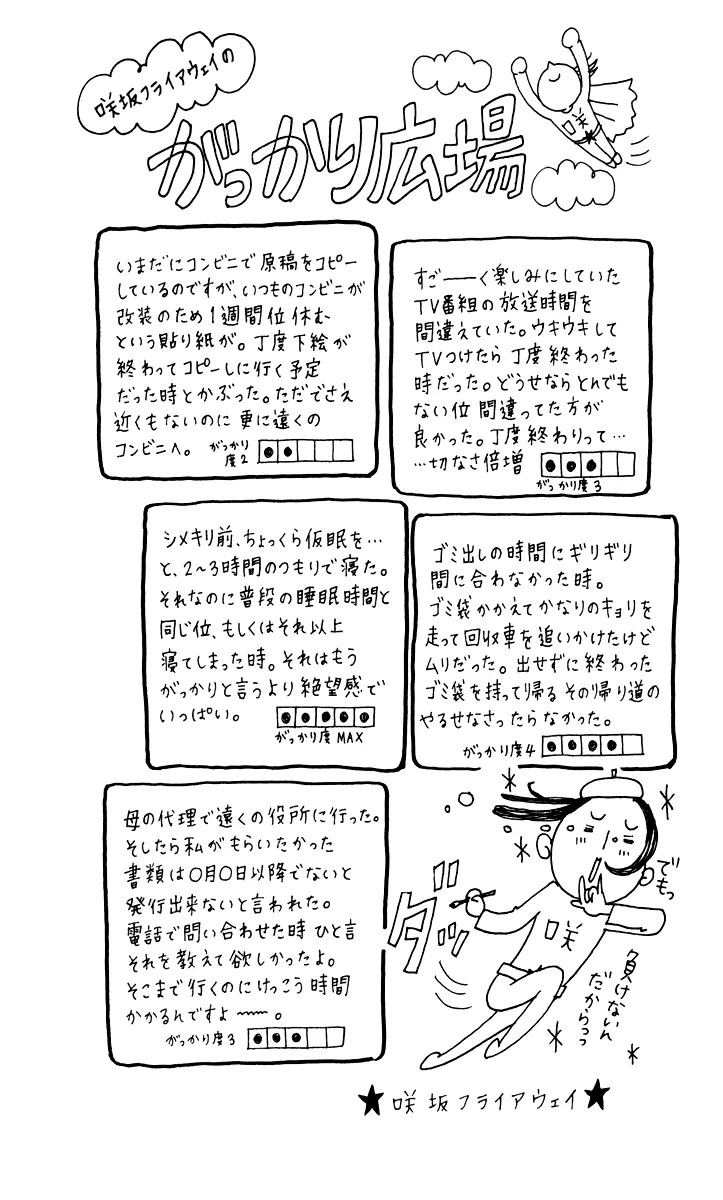 咲坂フライアウェイの
がっかり広場
咲
いまだにコンビニで原稿をコピー
しているのですが、いつものコンビニが
改装のため1週間位休む
という貼り紙が。丁度下絵が
終わってコピーしに行く予定
だった時とかぶった。ただでさえ
近くもないのに更に遠くの
コンビニへ。
がっかり
度2
すご――く楽しみにしていた
TV番組の放送時間を
間違えていた。ウキウキして
TVつけたら丁度終わった
時だった。どうせならとんでも
ない位間違ってた方が
良かった。丁度終わりって…
…切なさ倍増
がっかり度3
シメキリ前、ちょっくら仮眠を…
と、2~3時間のつもりで寝た。
それなのに普段の睡眠時間と
同じ位、もしくはそれ以上
寝てしまった時。それはもう
がっかりと言うより絶望感で
いっぱい。
がっかり度MAX
ゴミ出しの時間にギリギリ
間に合わなかった時。
ゴミ袋かかえてかなりのキョリを
走って回収車を追いかけたけど
ムリだった。出せずに終わった
ゴミ袋を持って帰るその帰り道の
やるせなさったらなかった。
がっかり度4
母の代理で遠くの役所に行った。
そしたら私がもらいたかった
書類は〇月〇日以降でないと
発行出来ないと言われた。
電話で問い合わせた時ひと言
それを教えて欲しかったよ。
そこまで行くのにけっこう時間
かかるんですよ〜〜。
がっかり度3
ダッ
咲
でもっ
負けないん
だからっっ
★咲坂フライアウェイ★